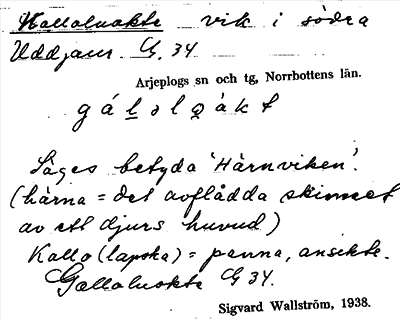 Kalloluokte vik i södra
Uddjaur. G. 34
Arjeplogs sn och tg, Norrbottens län.
gáləlọàkt
Säges betyda 'Härnviken'.
(härna = det avflådda skinnet
av ett djurs huvud)
Kallo (lapska) = panna, ansikte.
Galloluokte G 34.
Sigvard Wallström, 1938.